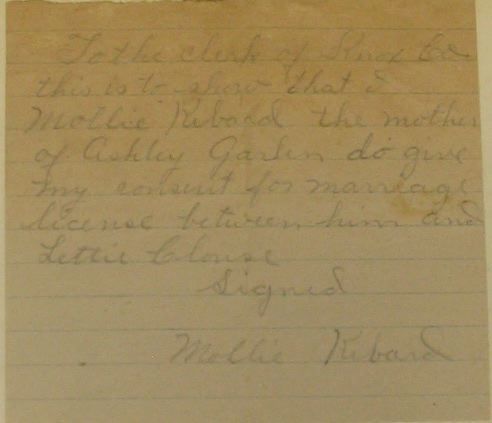 To the clerk of Knox Co.
this is to show that I
Mollie Kibard the mother
of Ashley Garlen do give
my consent for marriage
license between him and
Lettie Clouse
Signed
Mollie Kibard